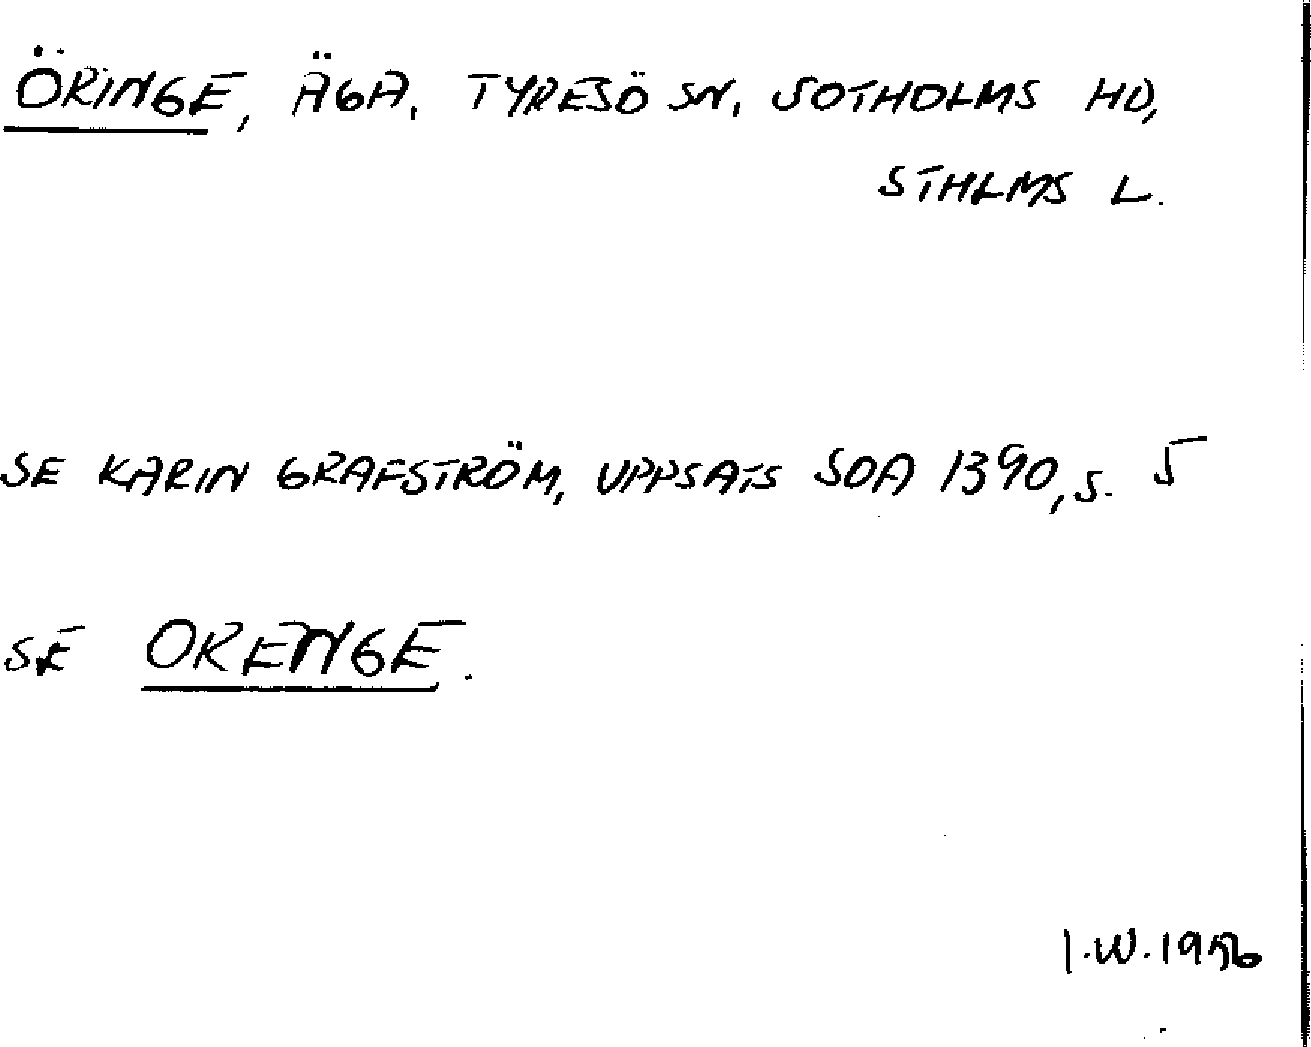 ÖRINGE, ÄGA, TYRESÖ SN, SOTHOLMS HD,
STHLMS L.
SE KARIN GRAFSTRÖM, UPPSATS SOA 1390, S. 5
SE ORENGE.
I.W. 1956